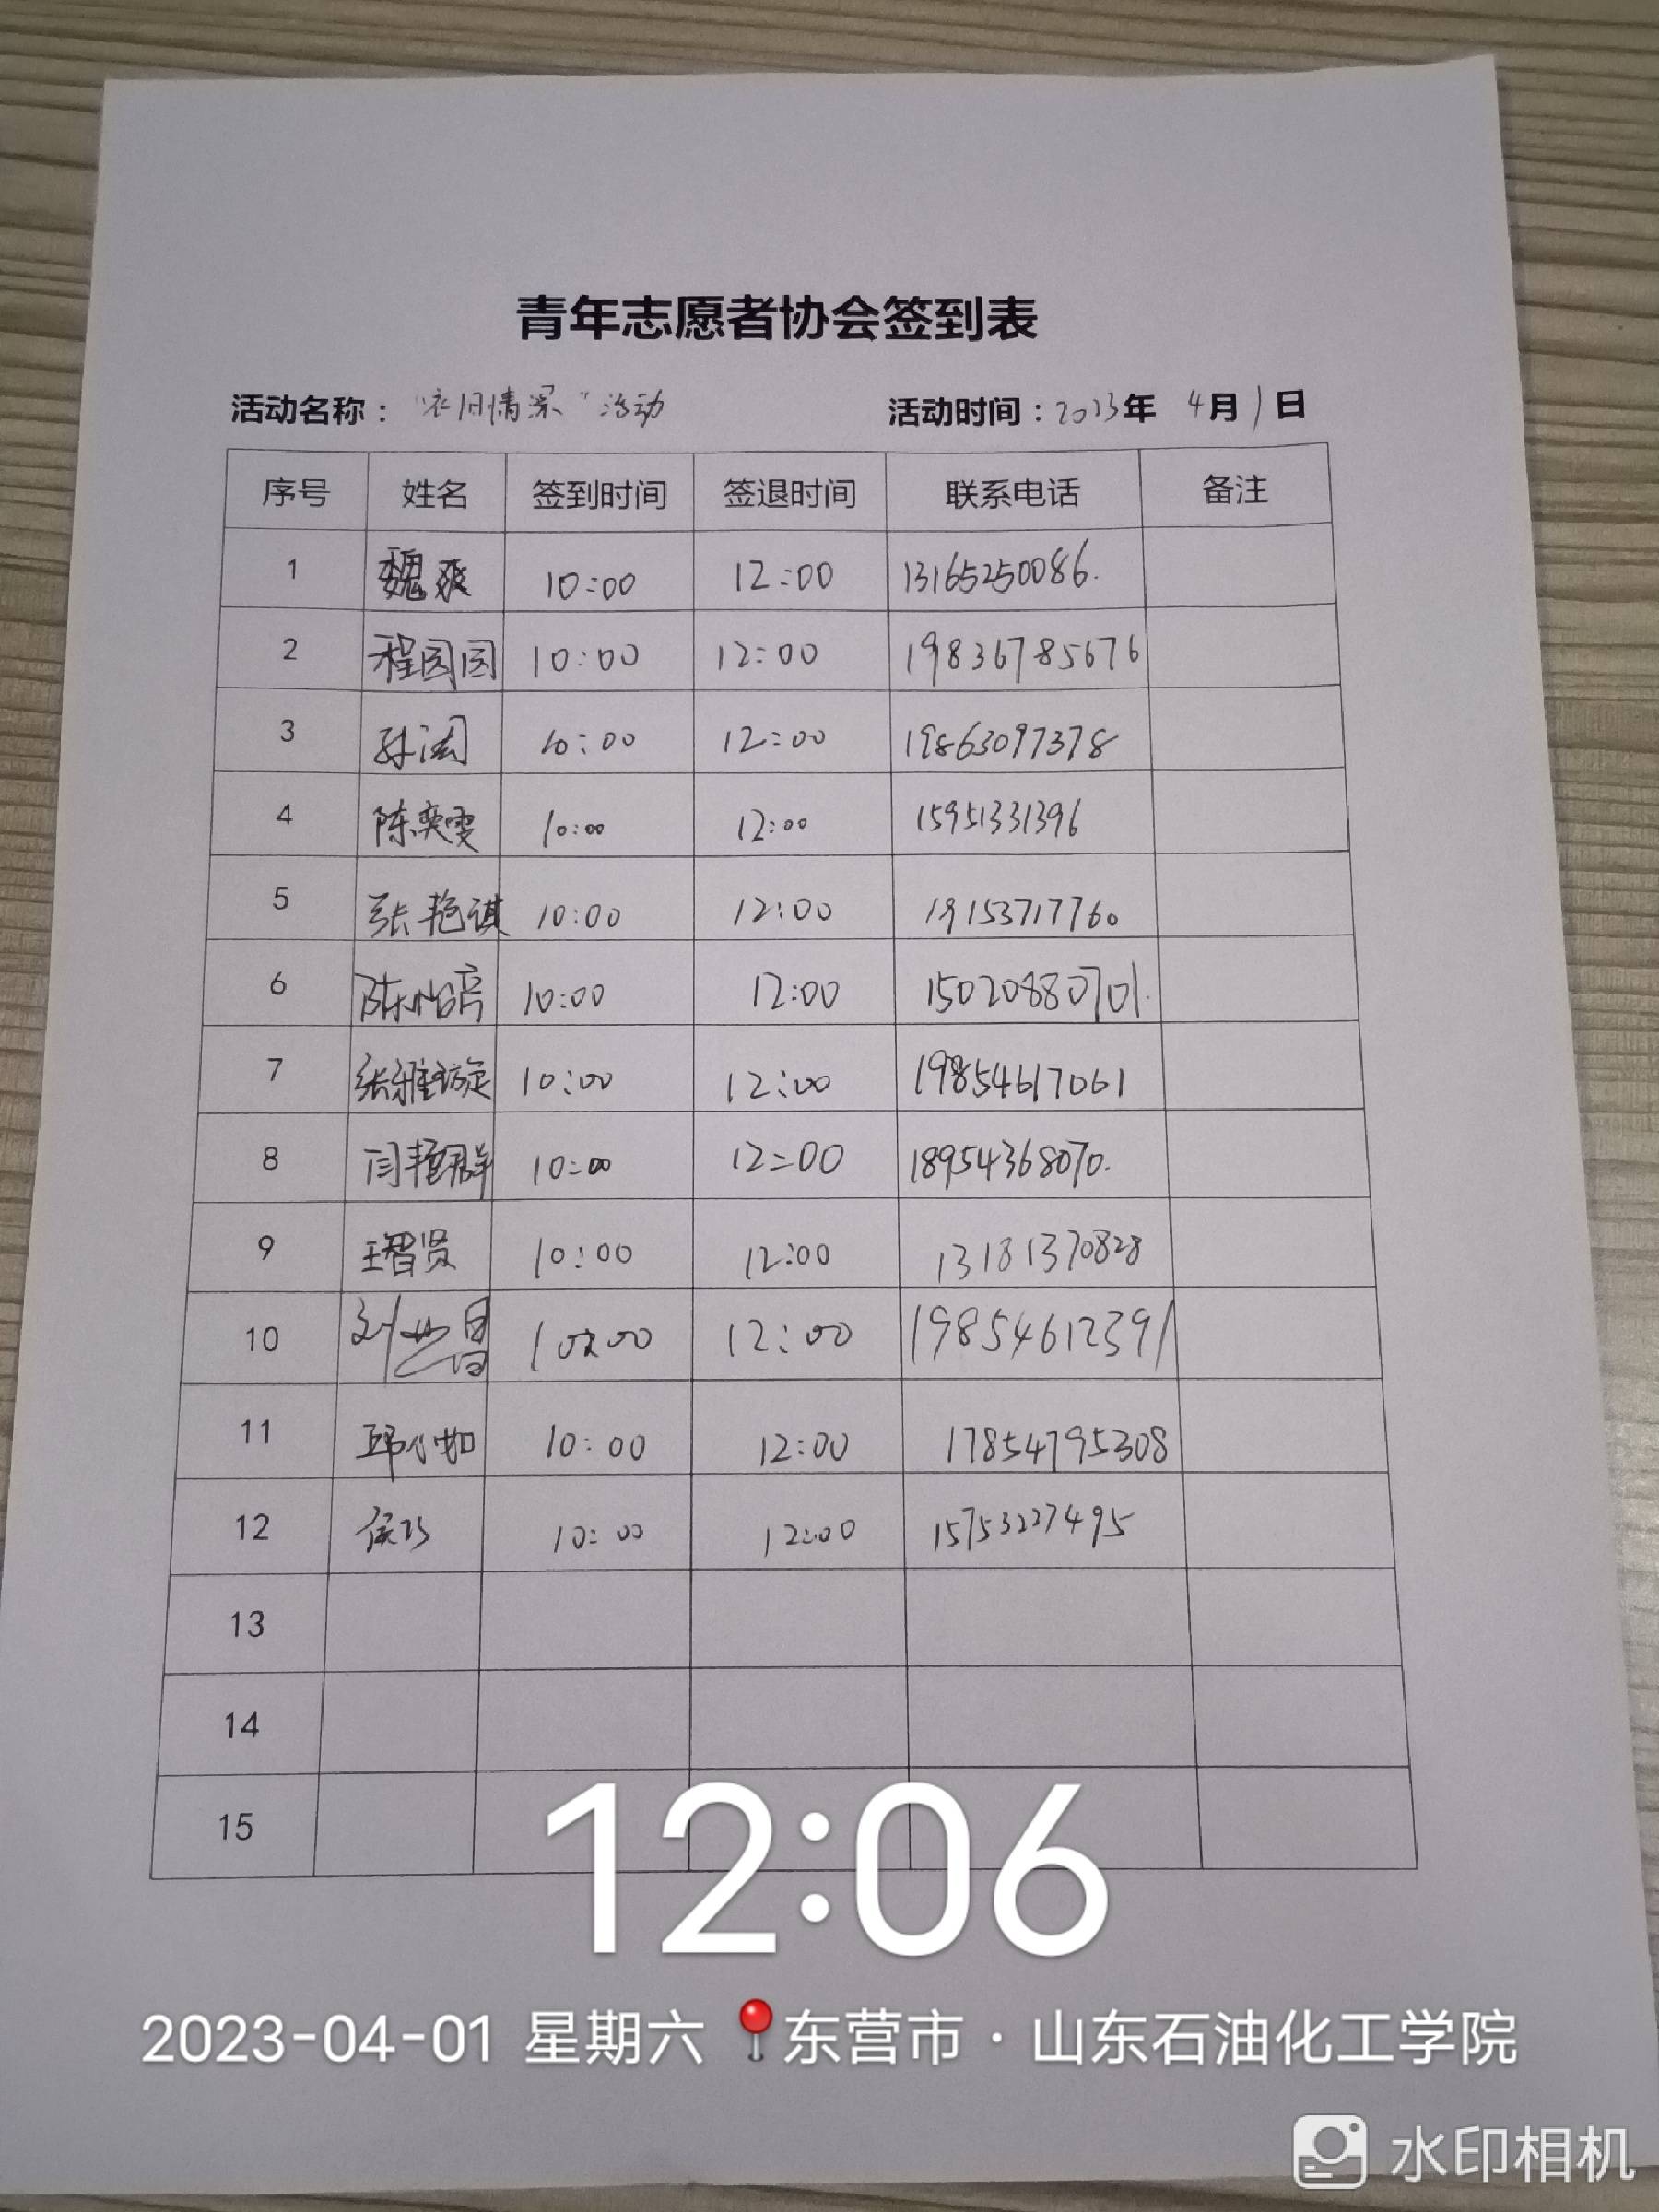 青年志愿者协会签到表
活动名称：“衣旧情深”活动 活动时间：2023年 4月1日
序号 姓名 签到时间 签退时间 联系电话 备注
1 魏爽 10:00 12:00 13165250086.
2 程园园 10:00 12:00 19836785676
3 孙 10:00 12:00 19863097378
4 陈奕雯 10:00 12:00 15951331396
5 张艳祺 10:00 12:00 19153717760
6 陈怡 10:00 12:00 15020880701.
7 张雅 10:00 12:00 19854617061
8 闫艳群 10:00 12:00 18954368070.
9 王智贤 10:00 12:00 13181370828
10 刘 10:00 12:00 19854612391
11 邱小如 10:00 12:00 17854795308
12 侯巧 10:00 12:00 15753227495
13
14
15
12:06
2023-04-01 星期六 东营市·山东石油化工学院
水印相机